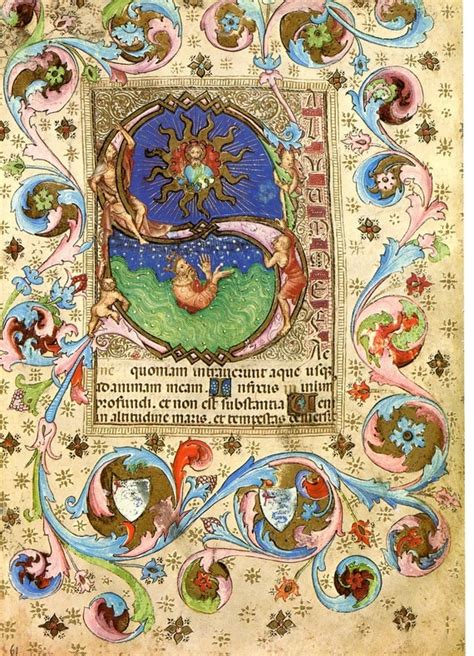 S
A
L
V
V
M
M
E
ac
quoniam intraverunt aque usq
ad animam meam Infixus in limo
profundi. et non est substantia Ven
in altitudine maris. et tempestas demersit